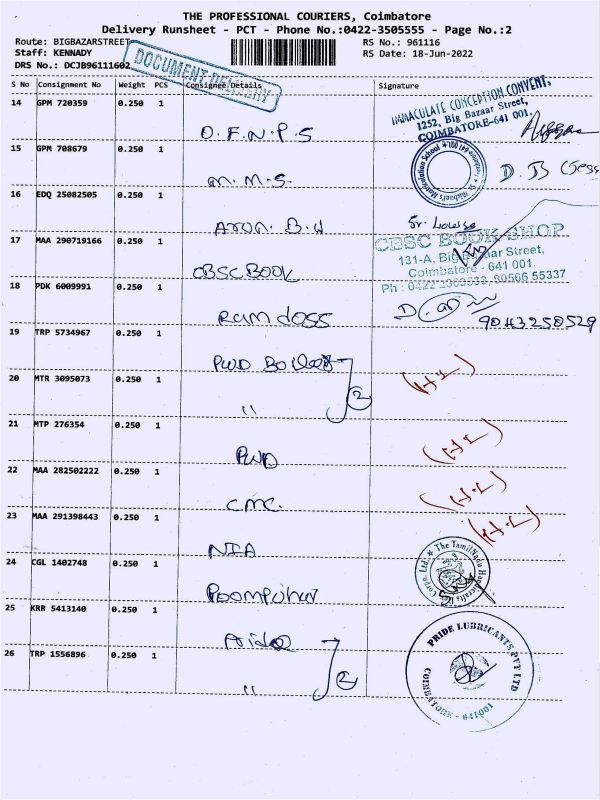 THE PROFESSIONAL COURIERS, Coimbatore
Delivery Runsheet - PCT - Phone No.:0422-3505555 - Page No.:2
Route: BIGBAZARSTREET
RS No.: 961116
Staff: KENNADY
RS Date: 18-Jun-2022
DRS No.: DCJB96111602
DOCUMENT DELIVERY
S No Consignment No Weight PCS Consignee Details Signature
14 GPM 720359 0.250 1
O. F. N. P. S
IMMACULATE CONCEPTION CONVENT,
1252, Big Bazaar Street,
COIMBATORE-641 001.
15 GPM 708679 0.250 1
M. M. S.
St. Michael's Matriculation School
16 EDQ 25082505 0.250 1
Arun. B. W
Sr. Louise
17 MAA 290719166 0.250 1
CBSC BOOK
CBSC BOOK SHOP
131-A, Big Bazaar Street,
Coimbatore - 641 001.
18 PDK 6009991 0.250 1
Ramdoss
9043250529
19 TRP 5734967 0.250 1
PWD
20 MTR 3095073 0.250 1
"
2
21 MTP 276354 0.250 1
PWD
22 MAA 282502222 0.250 1
CMC.
23 MAA 291398443 0.250 1
NIA
24 CGL 1402748 0.250 1
Poompuhar
The TamilNadu Handicrafts
25 KRR 5413140 0.250 1
26 TRP 1556896 0.250 1
"
2
PRIDE LUBRICANTS PVT LTD
COIMBATORE - 641001